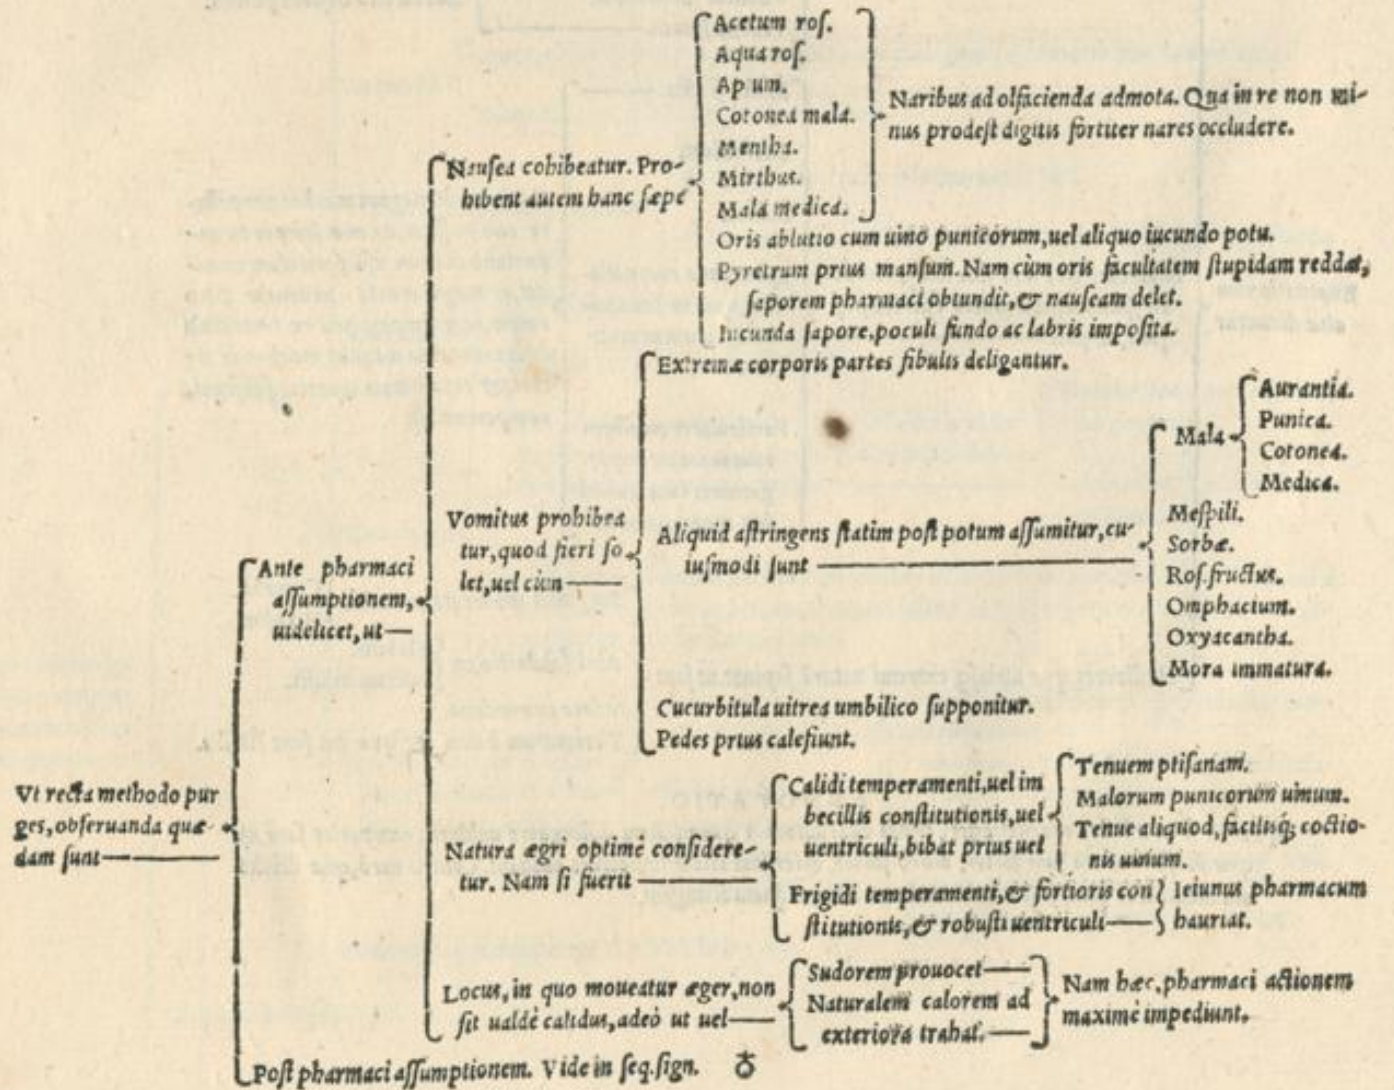 Vt recta methodo pur
ges, obseruanda quæ-
dam sunt
Ante pharmaci
assumptionem,
uidelicet, ut
Nausea cohibeatur. Pro-
hibent autem hanc sæpe
Acetum ros.
Aqua ros.
Ap um.
Cotonea mala.
Mentha.
Mirthus.
Mala medica.
Naribus ad olfacienda admota. Qua in re non mi-
nus prodest digitis fortiter nares occludere.
Oris ablutio cum uino punicorum, uel aliquo iucundo potu.
Pyretrum prius mansum. Nam cùm oris facultatem stupidam reddat,
saporem pharmaci obtundit, & nauseam delet.
Iucunda sapore, poculi fundo ac labris imposita.
Vomitus prohibea
tur, quod fieri so
let, uel cùm
Extremæ corporis partes fibulis deligantur.
Aliquid astringens statim post potum assumitur, cu-
iusmodi sunt
Mala
Aurantia.
Punica.
Cotonea.
Medica.
Mespili.
Sorbæ.
Ros. fructus.
Omphacium.
Oxyacantha.
Mora immatura.
Cucurbitula uitrea umbilico supponitur.
Pedes prius calefiunt.
Natura ægri optimè considere-
tur. Nam si fuerit
Calidi temperamenti, uel im
becillis constitutionis, uel
uentriculi, bibat prius uel
Tenuem ptisanam.
Malorum punicorum uinum.
Tenue aliquod, facilisq; coctio-
nis uinum.
Frigidi temperamenti, & fortioris con
stitutionis, & robusti uentriculi
Ieiunus pharmacum
hauriat.
Locus, in quo moueatur æger, non
sit ualdè calidus, adeò ut uel
Sudorem prouocet
Naturalem calorem ad
exteriora trahat.
Nam hæc, pharmaci actionem
maximè impediunt.
Post pharmaci assumptionem. Vide in seq. sign. ♁